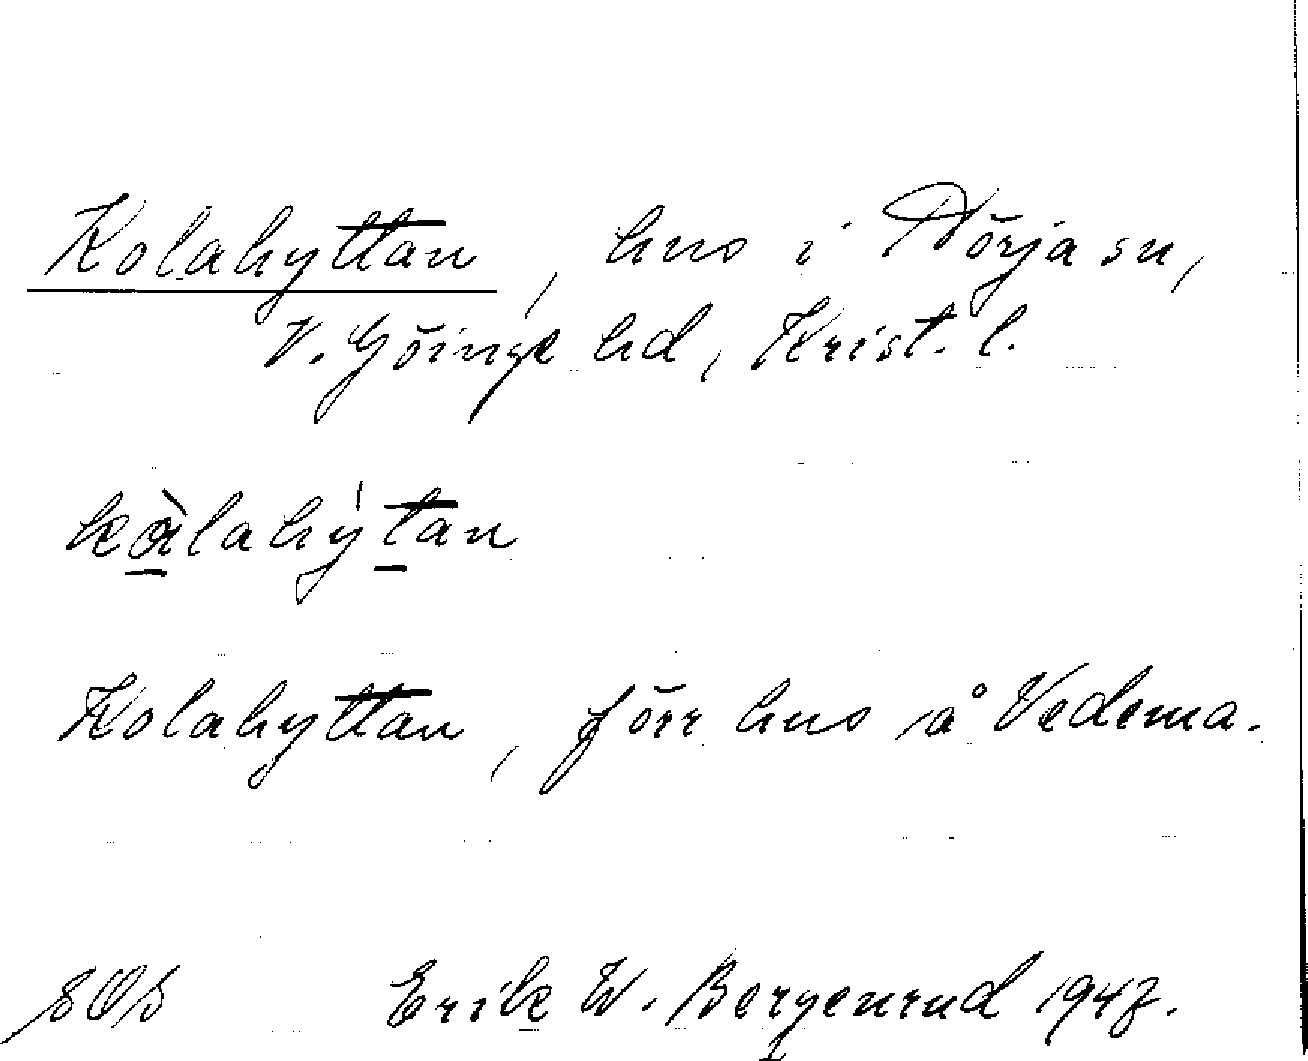 Kolahyttan, hus i Nörja sn,
V. Göinge hd, Krist. l.
kàlahy̍tan
Kolahyttan, förr hus å Vedema.
SOS Erik W. Bergenrud 1947.